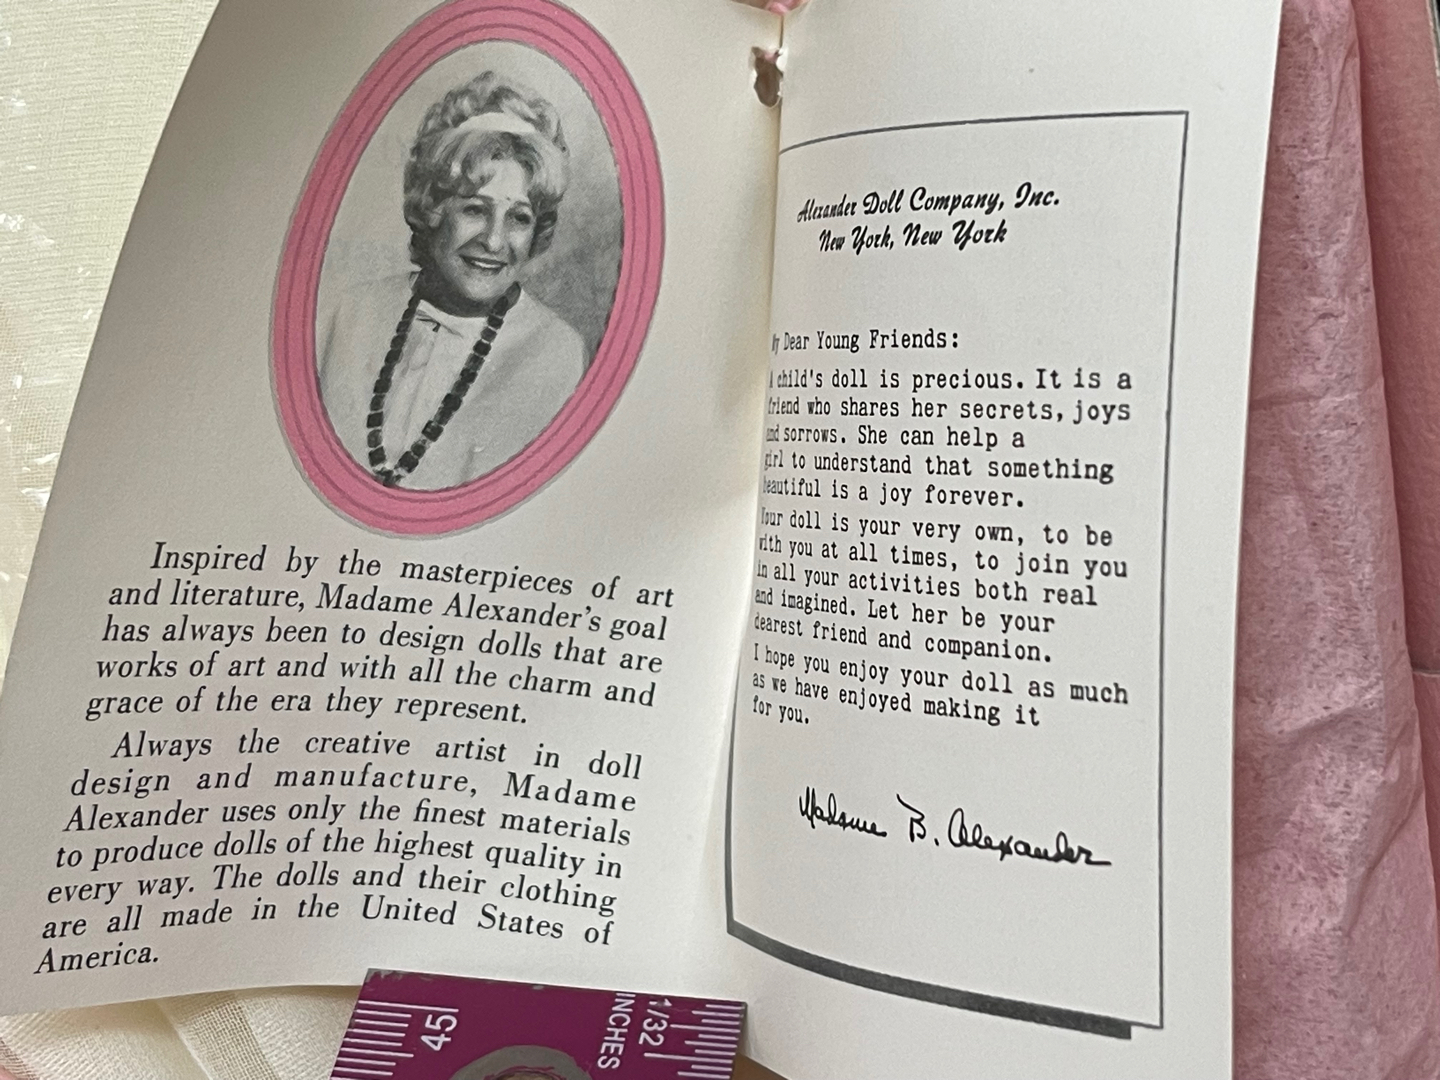 Inspired by the masterpieces of art
and literature, Madame Alexander's goal
has always been to design dolls that are
works of art and with all the charm and
grace of the era they represent.
Always the creative artist in doll
design and manufacture, Madame
Alexander uses only the finest materials
to produce dolls of the highest quality in
every way. The dolls and their clothing
are all made in the United States of
America.
Alexander Doll Company, Inc.
New York, New York
My Dear Young Friends:
A child's doll is precious. It is a
friend who shares her secrets, joys
and sorrows. She can help a
girl to understand that something
beautiful is a joy forever.
Your doll is your very own, to be
with you at all times, to join you
in all your activities both real
and imagined. Let her be your
dearest friend and companion.
I hope you enjoy your doll as much
as we have enjoyed making it
for you.
Madame B. Alexander
45
INCHES
1/32